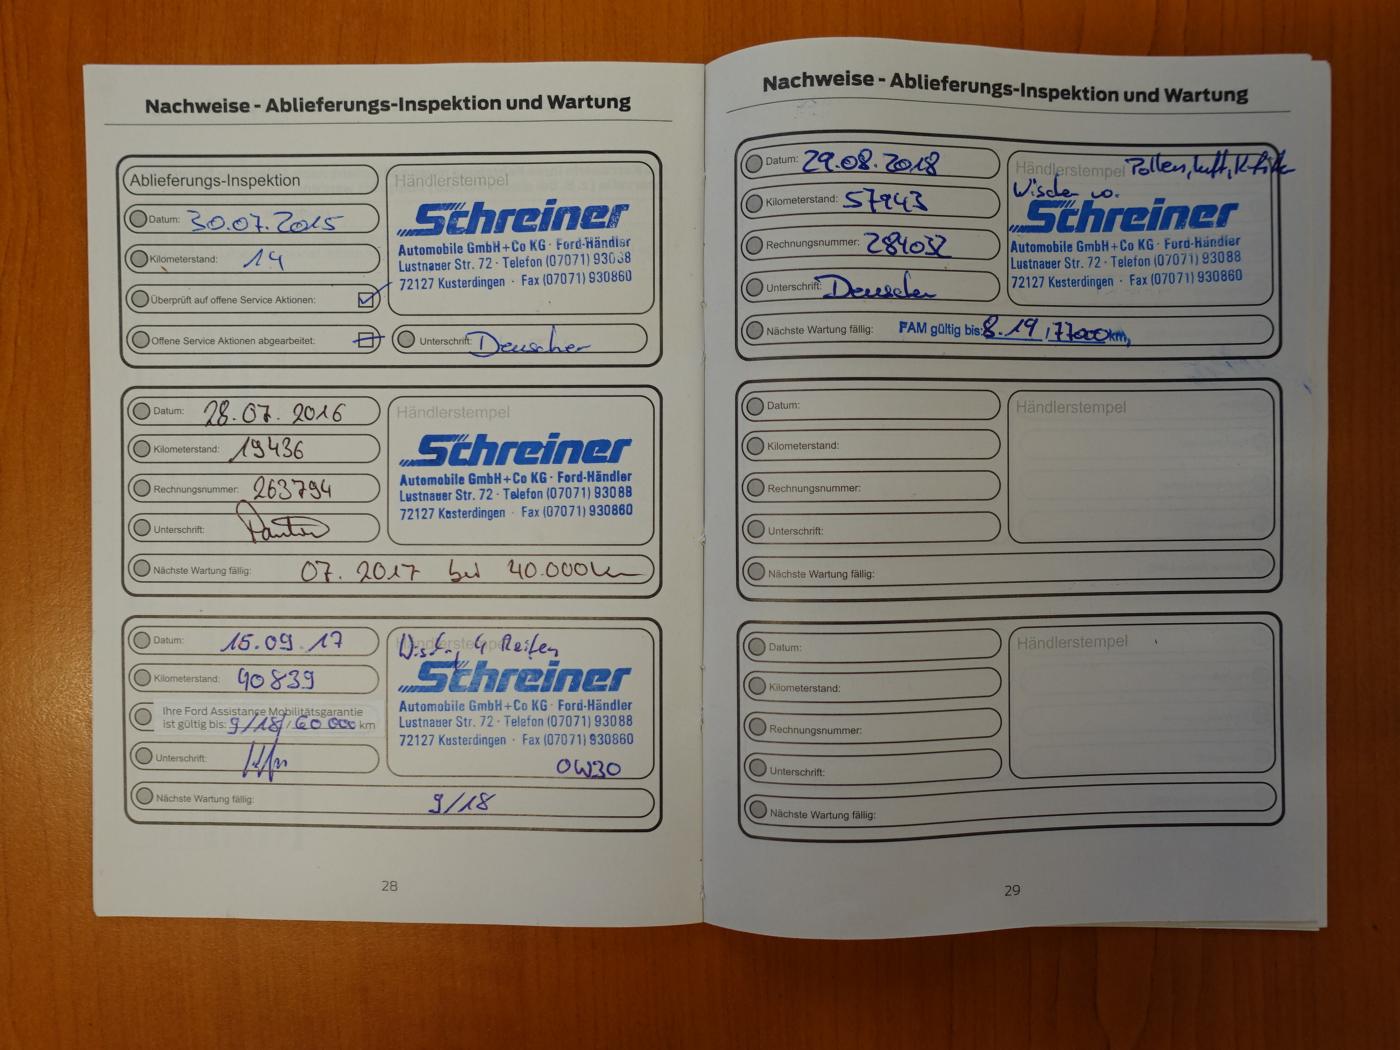 Nachweise - Ablieferungs-Inspektion und Wartung
Ablieferungs-Inspektion
Datum: 30.07.2015
Kilometerstand: 14
Überprüft auf offene Service Aktionen:
Offene Service Aktionen abgearbeitet:
Händlerstempel
Schreiner
Automobile GmbH+Co KG · Ford-Händler
Lustnauer Str. 72 · Telefon (07071) 93088
72127 Kusterdingen · Fax (07071) 930860
Unterschrift: Deuscher
Datum: 28.07.2016
Kilometerstand: 19436
Rechnungsnummer: 263794
Unterschrift:
Händlerstempel
Schreiner
Automobile GmbH+Co KG · Ford-Händler
Lustnauer Str. 72 · Telefon (07071) 93088
72127 Kusterdingen · Fax (07071) 930860
Nächste Wartung fällig: 07. 2017 bei 40.000km
Datum: 15.09.17
Kilometerstand: 40839
Ihre Ford Assistance Mobilitätsgarantie
ist gültig bis: 9/18/60000 km
Unterschrift:
Händlerstempel
4 Reifen
Schreiner
Automobile GmbH+Co KG · Ford-Händler
Lustnauer Str. 72 · Telefon (07071) 93088
72127 Kusterdingen · Fax (07071) 930860
0W30
Nächste Wartung fällig: 9/18
28
Nachweise - Ablieferungs-Inspektion und Wartung
Datum: 29.08.2018
Kilometerstand: 57943
Rechnungsnummer: 284032
Unterschrift: Deuscher
Händlerstempel Pollen, Luft,
Schreiner
Automobile GmbH+Co KG · Ford-Händler
Lustnauer Str. 72 · Telefon (07071) 93088
72127 Kusterdingen · Fax (07071) 930860
Nächste Wartung fällig: FAM gültig bis: 8.19 / 77000 km,
Datum:
Kilometerstand:
Rechnungsnummer:
Unterschrift:
Händlerstempel
Nächste Wartung fällig:
Datum:
Kilometerstand:
Rechnungsnummer:
Unterschrift:
Händlerstempel
Nächste Wartung fällig:
29